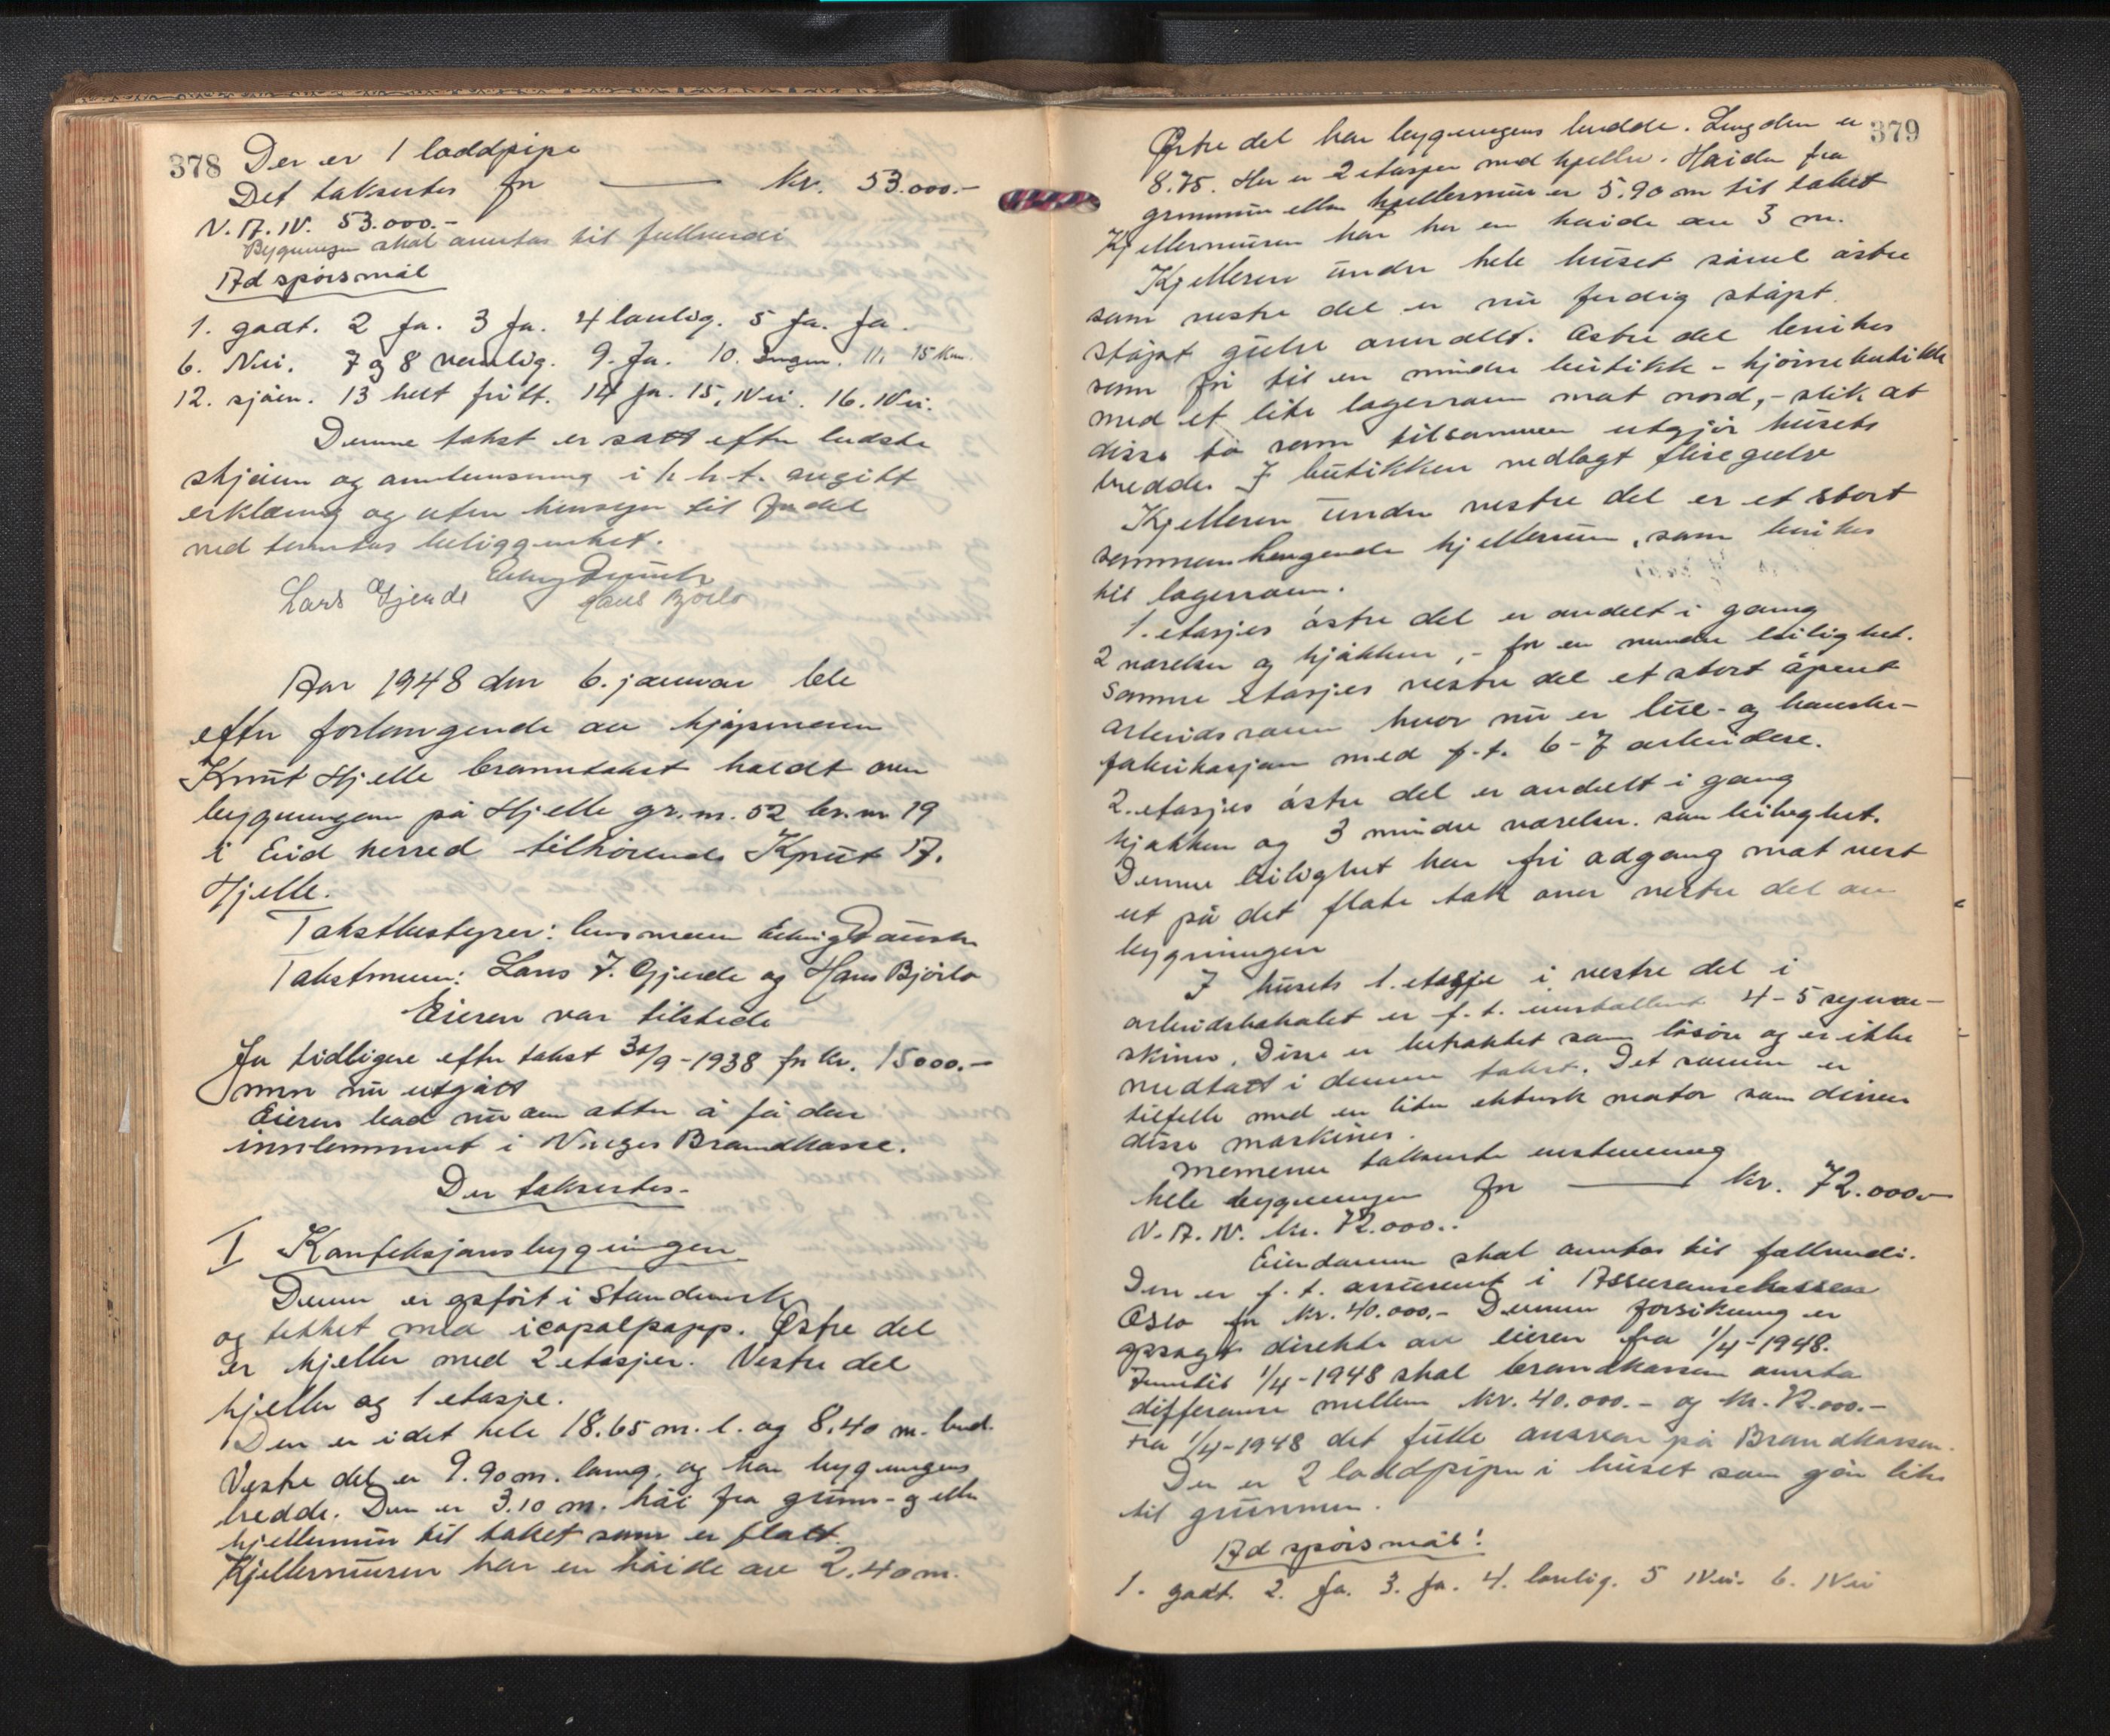 378
Der er 1 loddpipe
Det takseres for — kr. 53.000.-
N.A.N. 53.000.-
Bygningen skal anntas til fullverdi
Ad spörsmål
1. godt. 2 Ja. 3 Ja. 4 lovlig. 5 Ja. Ja.
6. Nei. 7 og 8 vanlig. 9. Ja. 10. Ingen. 11. 15 km.
12. sjöen. 13 helt fritt. 14 Ja. 15. Nei. 16. Nei.
Denne takst er satt efter bedste
skjönn og i h.h.t. avgitt
erklæring og uten hensyn til fordel
ved tomtas beliggenhet.
Lars Gjerde Hans Björlo
Aar 1948 den 6. januar ble
efter forlangende av kjöpmann
Knut Hjelle branntakst holdt over
bygningen på Hjelle gr.nr. 52 br.nr 19
i Eid herred tilhörende Knut A.
Hjelle.
Takstbestyrer: lensmann
Takstmenn: Lars J. Gjerde og Hans Björlo
Eieren var tilstede
tidligere efter takst 30/9-1938 for kr. 15000.-
men nu utgått
Eieren bad nu om atter å få den
innlemmet i Norges Brandkasse.
Der takseres-
I Konfeksjonsbygningen
Denne er opfört i Standerverk
og tekket med icopalpapp. Östre del
er kjeller med 2 etasjer. Vestre del
kjeller og 1 etasje.
Den er i det hele 18.65 m. l. og 8.40 m. bred.
Vestre del er 9.90 m. lang, og har bygningens
bredde. Den er 3.10 m. höi fra grunn- og eller
kjellermur til taket som er flatt.
Kjellermuren har en höide av 2.40 m.
379
Östre del har bygningens bredde. Lengden er
8.75. Her er 2 etasjer med kjeller. Höiden fra
grunnmur eller kjellermur er 5.90 m til taket
Kjellermuren har her en höide av 3 m.
Kjelleren under hele huset såvel östre
som vestre del er nu ferdig stöpt.
Stöpt gulv overallt. Östre del benikes
rom for til en mindre butikk - hjörnebutikk
med et lite lagerrom mot nord, - slik at
disse to rom tilsammen utgjör husets
bredde. I butikken nedlagt flisegulv
Kjelleren under vestre del er et stort
sammenhengende kjellerrum, som benikes
til lagerrom.
1. etasjes östre del er avdelt i gang
2 værelser og kjökken, - for en mindre leilighet.
Samme etasjes vestre del et stort åpent
arbeidsrom hvor nu er lue- og hanske-
fabrikasjon med f.t. 6-7 arbeidere.
2. etasjes östre del er avdelt i gang
kjökken og 3 mindre værelser. som leilighet.
Denne leilighet har fri adgang mot vest
ut på det flate tak over vestre del av
bygningen
I husets 1. etasje i vestre del i
arbeidslokalet er f.t. installert 4-5 syma-
skiner. Disse er betraktet som lösöre og er ikke
medtatt i denne takst. Det samme er
tilfelle med en liten elektrisk motor som driver
disse maskiner.
Mennene takserte enstemmig
hele bygningen for — kr. 72.000.-
N.A.N. kr. 72.000.-
Eiendommen skal anntas til fullverdi.
Den er f.t. assurert i Assuransekassen
Oslo for kr. 40.000.- Denne forsikring er
opsagt direkte av eieren fra 1/4-1948.
Inntil 1/4-1948 skal brandkassen annta
differanse mellem kr. 40.000.- og kr. 72.000.-
Fra 1/4-1948 det fulle ansvar på Brandkassen.
Der er 2 loddpiper i huset som går like
til grunnen.
Ad spörsmål!
1. godt. 2. Ja. 3. Ja. 4. lovlig. 5 Nei. 6. Nei